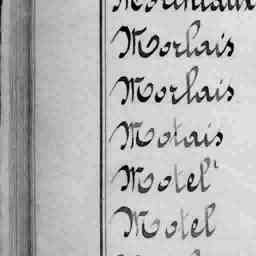 Morlais
Morlais
Motais
Motel
Motel